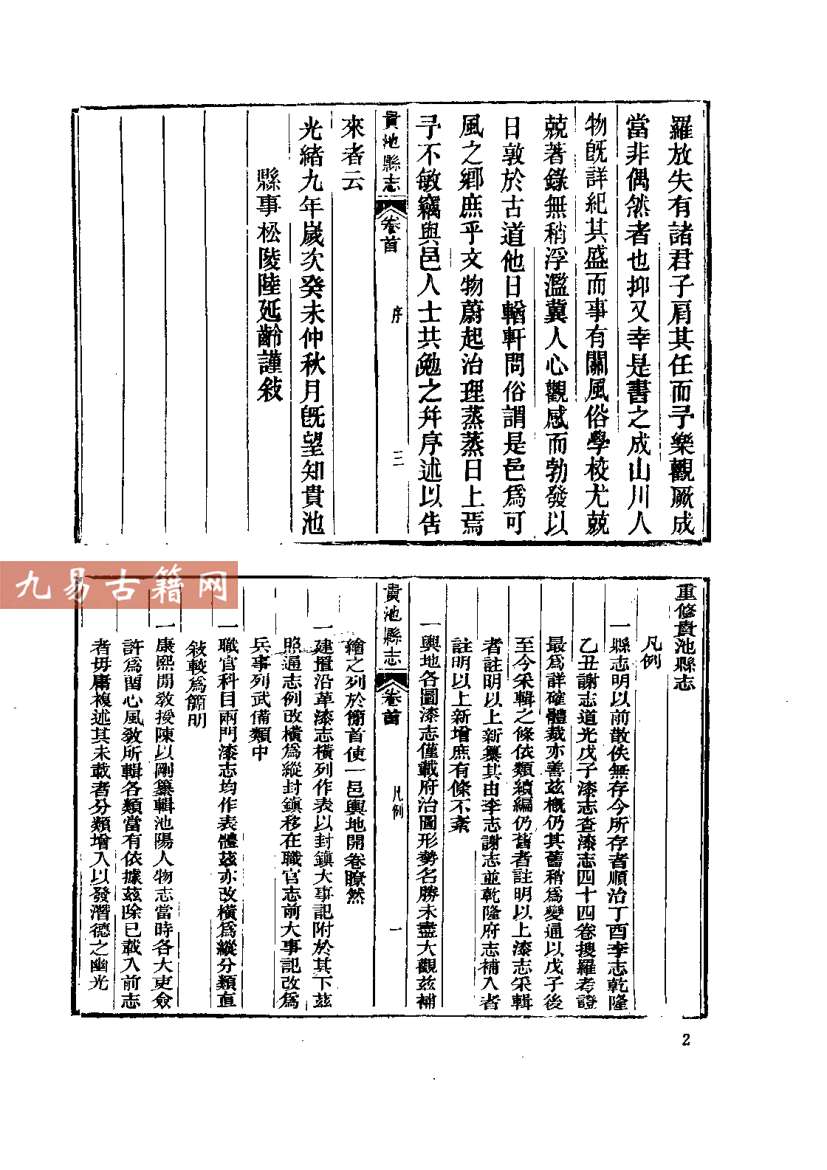 羅放失有諸君子肩其任而予樂觀厥成
當非偶然者也抑又幸是書之成山川人
物旣詳紀其盛而事有關風俗學校尤兢
兢著錄無稍浮濫冀人心觀感而勃發以
日敦於古道他日輶軒問俗謂是邑爲可
風之鄉庶乎文物蔚起治理蒸蒸日上焉
予不敏竊與邑人士共勉之幷序述以告
貴池縣志 卷首 序 三
來者云
光緒九年歲次癸未仲秋月旣望知貴池
縣事松陵陸延齡謹敍
九易古籍网
重修貴池縣志
凡例
一縣志明以前散佚無存今所存者順治丁酉李志乾隆
乙丑謝志道光戊子漆志查漆志四十四卷搜羅考證
最爲詳確體裁亦善茲槪仍其舊稍爲變通以戊子後
至今采輯之條依類續編仍舊者註明以上漆志采輯
者註明以上新纂其由李志謝志並乾隆府志補入者
註明以上新增庶有條不紊
一輿地各圖漆志僅載府治圖形勢名勝未盡大觀茲補
貴池縣志 卷首 凡例 一
繪之列於簡首使一邑輿地開卷瞭然
一建置沿革漆志橫列作表以封鎭大事記附於其下茲
照通志例改橫爲縱封鎭移在職官志前大事記改爲
兵事列武備類中
一職官科目兩門漆志均作表體茲亦改橫爲縱分類直
敍較爲簡明
一康熙間敎授陳以剛纂輯池陽人物志當時各大吏僉
許爲留心風敎所輯各類當有依據茲除已載入前志
者毋庸複述其未載者分類增入以發潛德之幽光
2